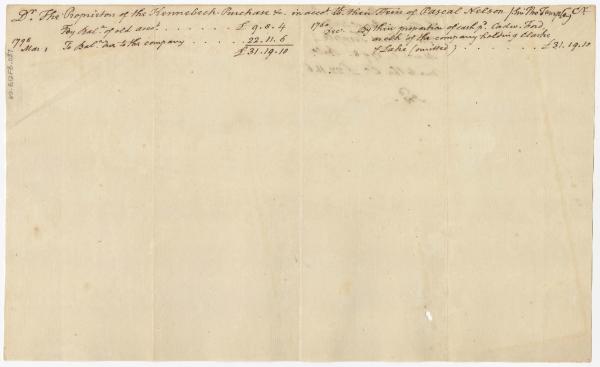 Dr. The Proprietors of the Kennebeck Purchase &c. in acct. wth. their Trees of Pascal Nelson (Sr. Jno. Temple) Cr.
For Bal.ce of old acct. . . . . . . . £. 9.8.4
1798 Mar. 1 To Bal.ce due to the company . . . . . 22.11.6
£31.19.10
1760 Dec. By their proportion of cash pd. Cadwr. Ford
in acct. of the company holding Clarke
& Lake (omitted) . . . . . . . £31.19.10